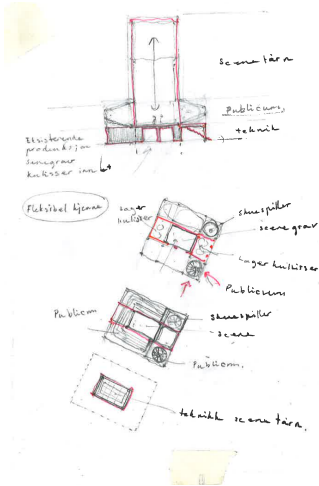 scene tårn
Publicum,
teknik
Eksisterende
produksjon
scenegrav
kulisser inn
Fleksibel kjerne
lager
kulisser
skuespiller
scene grav
Lager kulisser
Publicum
Publicum
skuespiller
scene
Publicum,
teknikk scene tårn.